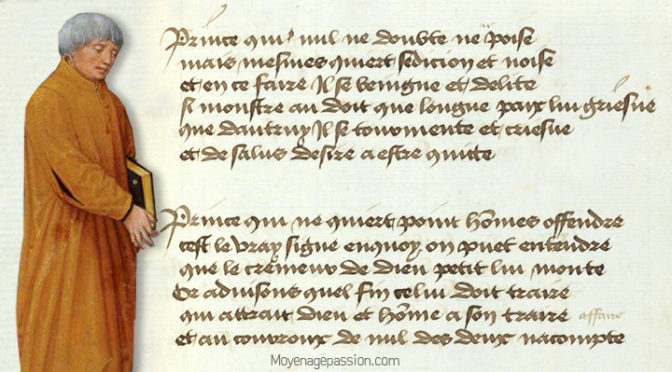 Prince qui nul ne doubte ne poise
mais mesmes quiert sedicion et noise
et en ce faire Il se et delite
si monstre au doit que longue paix lui griesue
que dautruy Il se tourmente et criesue
et de salus desire a estre quitte
Prince qui ne quiert point hōmes offendre
cest le vray signe enquoy on puet entendre
que le cremeur de dieu petit lui monte
Or aduisons quel fin celui doit traire
qui attrait dieu et hōme a son traire affaire
et au couroux de nul des deux nacompte
Moyenagepassion.com